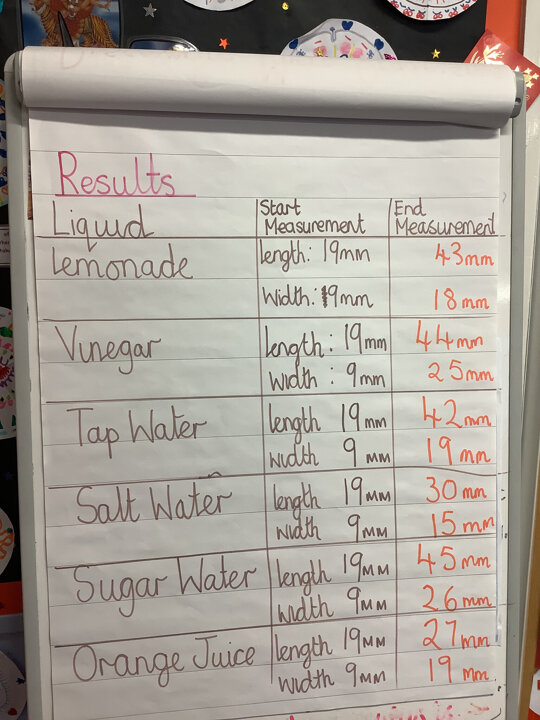 Results
Liquid Start Measurement End Measurement
Lemonade length: 19mm 43mm
width: 9mm 18mm
Vinegar length: 19mm 44mm
width: 9mm 25mm
Tap Water length 19mm 42mm
width 9mm 19mm
Salt Water length 19mm 30mm
width 9mm 15mm
Sugar Water length 19mm 45mm
width 9mm 26mm
Orange Juice length 19mm 27mm
width 9mm 19mm